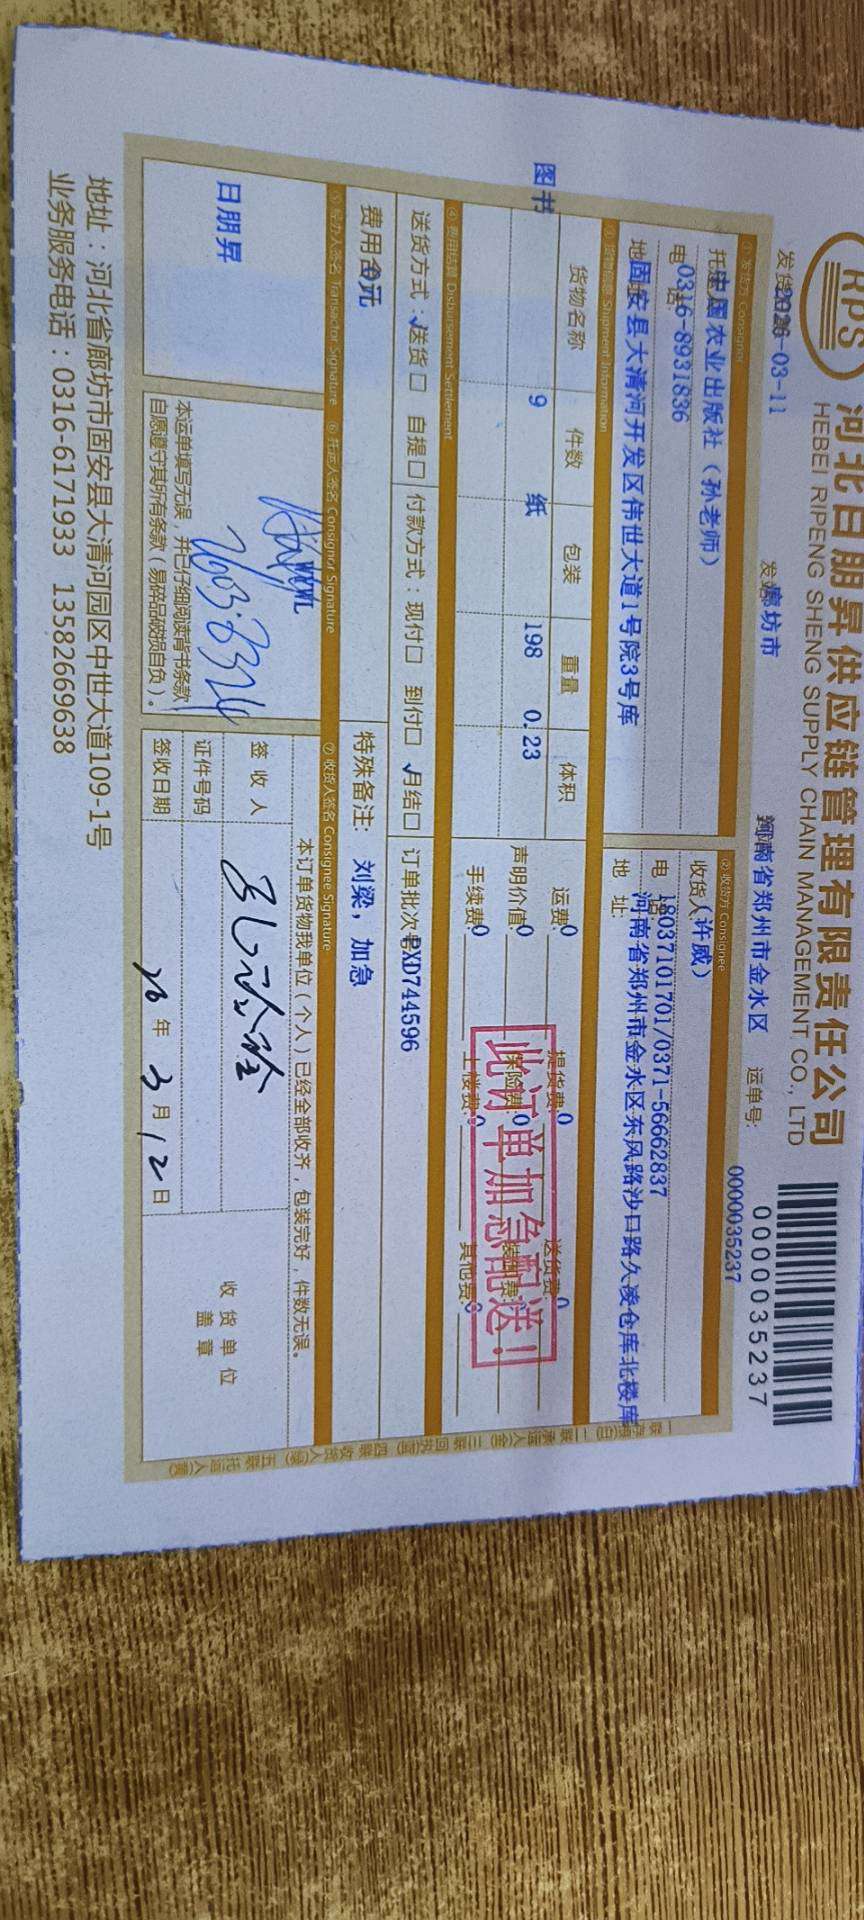 RPS
河北日朋昇供应链管理有限责任公司
HEBEI RIPENG SHENG SUPPLY CHAIN MANAGEMENT CO., LTD
0000035237
2026-03-11
廊坊市
河南省郑州市金水区
运单号:
0000035237
① 发货方 Consignor
中国农业出版社（孙老师）
0316-8931836
固安县大清河开发区伟世大道1号院3号库
② 收货方 Consignee
收货人（许威）
18037101701/0371-56662837
河南省郑州市金水区东风路沙口路久凌仓库北楼库
地 址:
③ 货物信息 Shipment Information
货物名称 件数 包装 重量 体积
图书 9 纸 198 0.23
运费:0 提货费:0 送货费:0
声明价值:0 保险费:0
手续费:0 上楼费:0 其他费:0
此订单加急配送！
④ 费用结算 Disbursement Settlement
送货方式：√送货□ 自提□ 付款方式：现付□ 到付□ √月结□ 订单批次号:PXD744596
特殊备注: 刘梁，加急
⑤ 经办人签名 Transactor Signature
⑥ 托运人签名 Consignor Signature
⑦ 收货人签名 Consignee Signature
日朋昇
WWWL
本运单填写无误，并已仔细阅读背书条款
自愿遵守其所有条款（易碎品破损自负）。
本订单货物我单位（个人）已经全部收齐，包装完好，件数无误。
签 收 人
证件号码
签收日期 26 年 3 月 12 日
收货单位
盖 章
地址：河北省廊坊市固安县大清河园区中世大道109-1号
业务服务电话：0316-6171933 13582669638